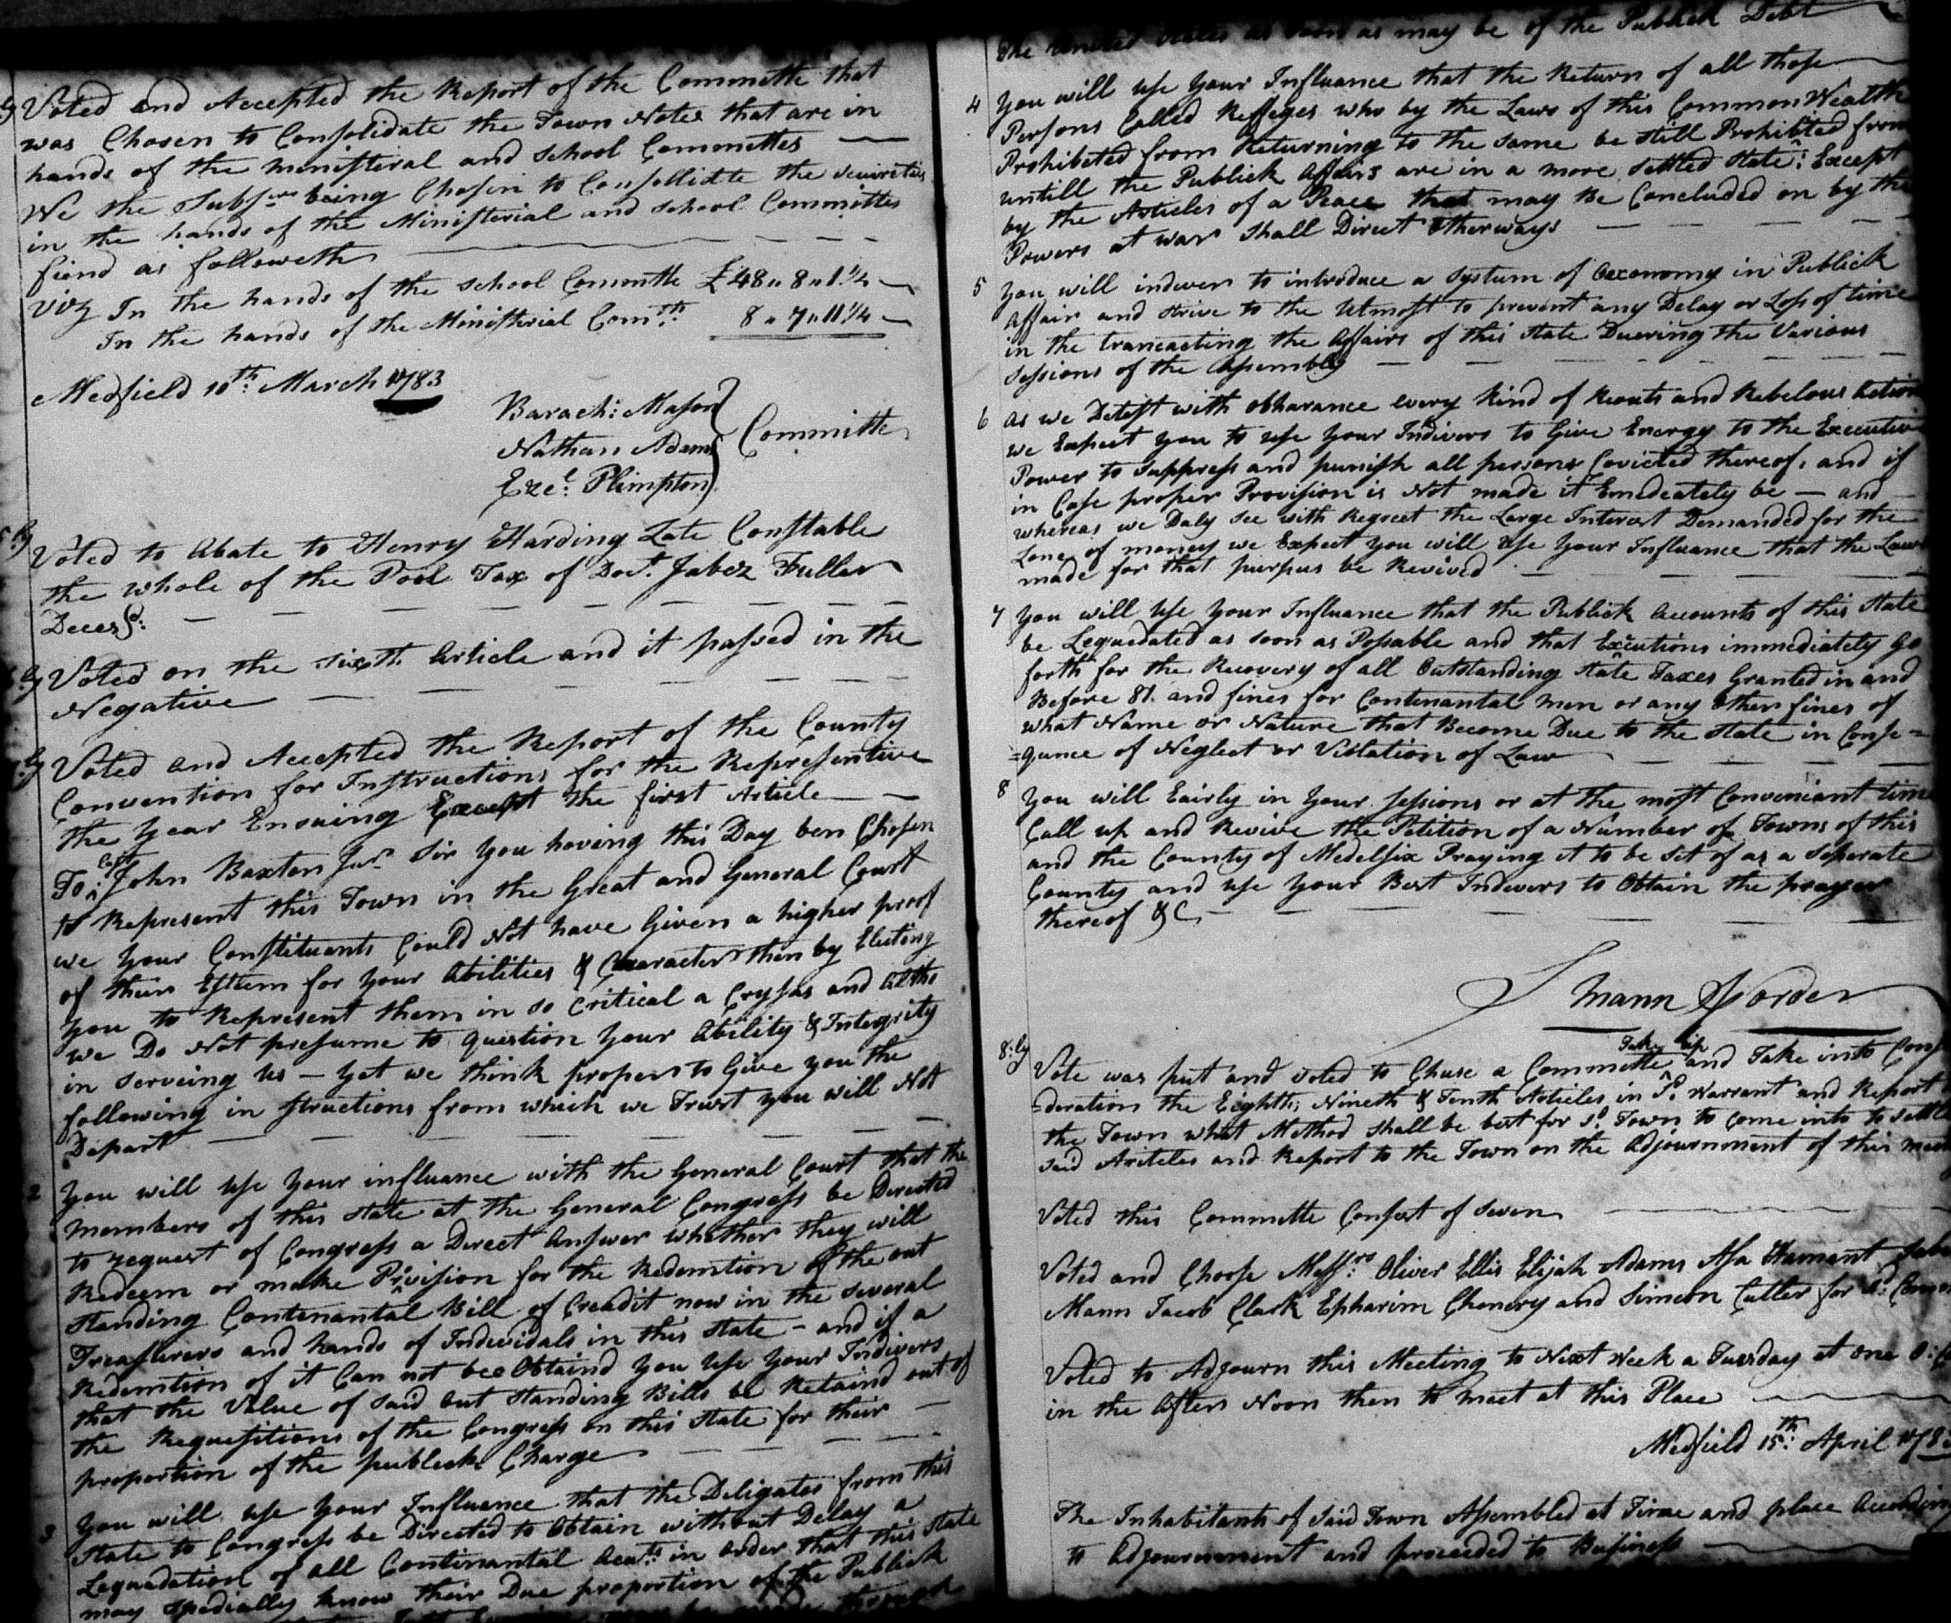 ly Voted and Accepted the Report of the Committe that
was Chosen to Consolidate the Town Notes that are in
hands of the ministeral and School Committes
We the Subsrs being Chosen to Consollidate the securities
in the hands of the Ministerial and School Committes
fiend as followeth
viz In the hands of the School Committe £48 " 8 " 1 1/4
In the hands of the Ministerial Comtte: 8 " 7 " 11 1/4
Medfield 10th: March 1783
Barach: Mason
Nathan Adams
Ezel: Plimpton
Committe
5:ly Voted to Abate to Henry Harding Late Constable
the whole of the Pool Tax of Doct. Jabez Fuller
Decesd:
6:ly Voted on the sixth Article and it passed in the
Negative
7:ly Voted and Accepted the Report of the County
Convention for Instructions for the Representive
the Year Ensuing Except the first Article
To: Capt John Baxton Junr Sir you having this Day ben Chosen
to Represent this Town in the Great and General Court
we your Constituants Could Not have Given a higher proof
of their Esteem for your Abilities & Character then by Electing
you to Represent them in so Critical a Crysas and altho
we Do Not presume to question your Ability & Integrity
in serveing us — Yet we think proper to Give you the
following in structions from which we Trust you will Not
Depart
2 You will use your influance with the General Court that the
members of this state at the General Congress be Directed
to request of Congress a Direct Answer whether they will
Redeem or make Provision for the Redemtion of the out
standing Contenantal Bill of Creadit now in the several
Treasurers and hands of Individals in this state - and if a
Redemtion of it Can not bee Obtaind you use your Indivers
that the Value of said out standing Bills be Retaind out of
the Requesitions of the Congress on this State for their
proportion of the publeck Charge
3 You will use your Influance that the Deligates from this
State to Congress be Directed to Obtain without Delay a
Lequedation of all Continantal Accts: in order that this State
may Speedially know their Due proportion of the Publick
the United States as soon as may be of the Publick Debt
4 you will use your Influance that the Return of all those
Persons Called Reffeges who by the Laws of this Common Wealth
Prohibeted from Returning to the same be still Prohibted from
untill the Publick Affairs are in a more settled state: Except
by the Articles of a Peace that may Be Concluded on by the
Powers at war shall Direct otherways
5 you will indever to introduce a systum of Oeconomy in Publick
Affair and strive to the Utmost to prevent any Delay or Loss of time
in the trancacting the Affairs of this State Duering the Various
sessions of the Assembly
6 as we Detest with obharance every kind of Reouts and Rebelous action
we Expect you to use your Indivers to Give Energy to the Executive
Power to suppress and punish all persons Covicted thereof, and if
in Case proper Provision is Not made it Emedeately be — and
whereas we Daly see with Regreet the Large Interest Demanded for the
Lone of money we Expect you will use your Influance that the Laws
made for that purpus be Revived
7 you will use your Influance that the Publick accounts of this State
be Lequedated as soon as Possable and that Excutions immediately go
forth for the Recovery of all Outstanding State Taxes Granted in and
Before 81. and fines for Contenantal men or any other fines of
what Name or Nature that Become Due to the State in Conse=
=quance of Neglect or Violation of Law
8 you will Eairly in your sessions or at the most Conveniant time
Call up and Revive the Petition of a Number of Towns of this
and the County of Medelsix Praying it to be set of as a Seperate
County and use your Best Indevers to Obtain the prayer
thereof &C
S Mann Pr order
8:ly Vote was put and voted to Chuse a Committe Take up and Take into Consi
=deration the Eighth, Nineth & Tenth Articles in sd. Warrant and Report
the Town what Method shall be best for sd. Town to come into to settle
said Aritcles and Report to the Town on the Adjournment of this meeting
Voted this Committe Consest of seven
Voted and Choose Messrs: Oliver Ellis Elijah Adams Asa Hamant
Mann Jacob Clark Epharim Chenery and Simeon Cutler for sd: Comm
Voted to Adjourn this Meeting to Next Week a Tuesday at one O:
in the After Noon then to meet at this Place
Medfield 15th: April 178
The Inhabitants of Said Town Assembled at Time and place According
to Adjournment and proceeded to Business